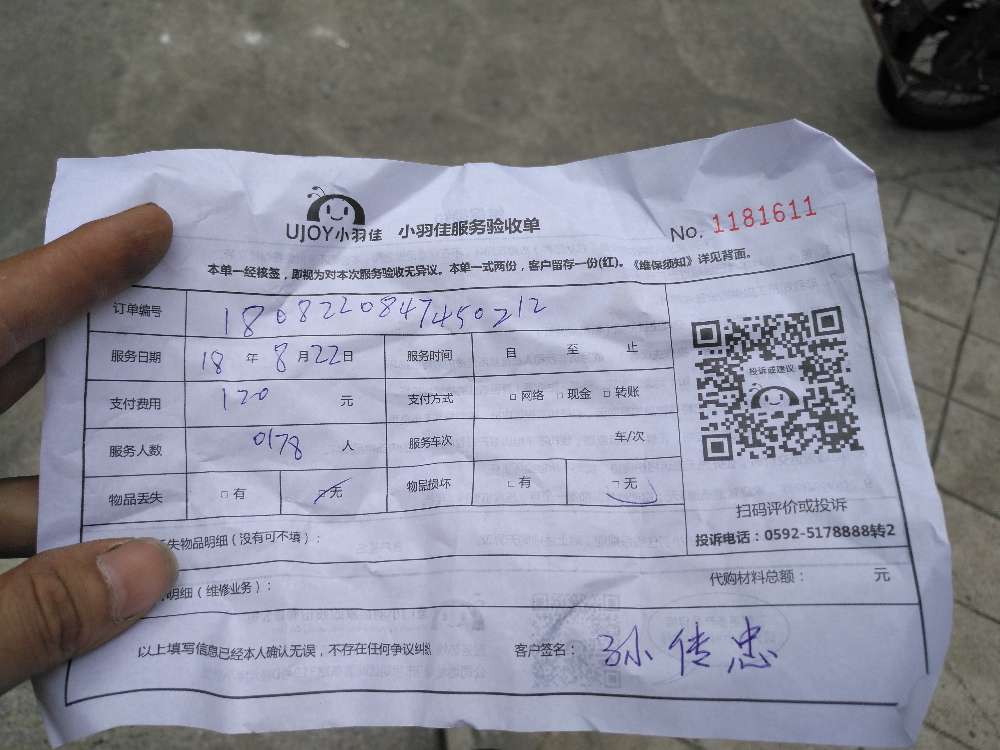 UJOY小羽佳 小羽佳服务验收单 No. 1181611
本单一经核签，即视为对本次服务验收无异议。本单一式两份，客户留存一份(红)。《维保须知》详见背面。
订单编号 180822084745021​2
服务日期 18 年 8 月 22 日 服务时间 自 至 止
支付费用 120 元 支付方式 □ 网络 □ 现金 □ 转账
服务人数 0178 人 服务车次 车/次
物品丢失 □ 有 □ 无 物品损坏 □ 有 □ 无
投诉或建议
扫码评价或投诉
投诉电话：0592-5178888转2
失物品明细（没有可不填）：
明细（维修业务）： 代购材料总额： 元
以上填写信息已经本人确认无误，不存在任何争议纠 客户签名： 孙传忠